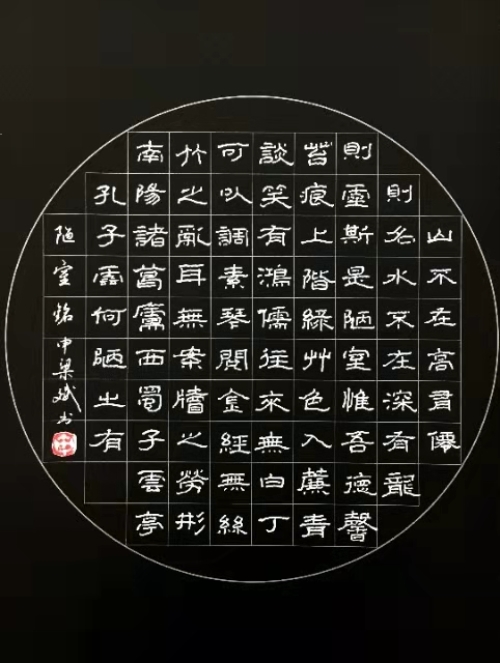 山不在高有僊
則名水不在深有龍
則靈斯是陋室惟吾德馨
苔痕上階緑艸色入簾青
談笑有鴻儒往來無白丁
可以調素琴閱金經無絲
竹之亂耳無案牘之勞形
南陽諸葛廬西蜀子雲亭
孔子云何陋之有
陋室銘申梁斌书